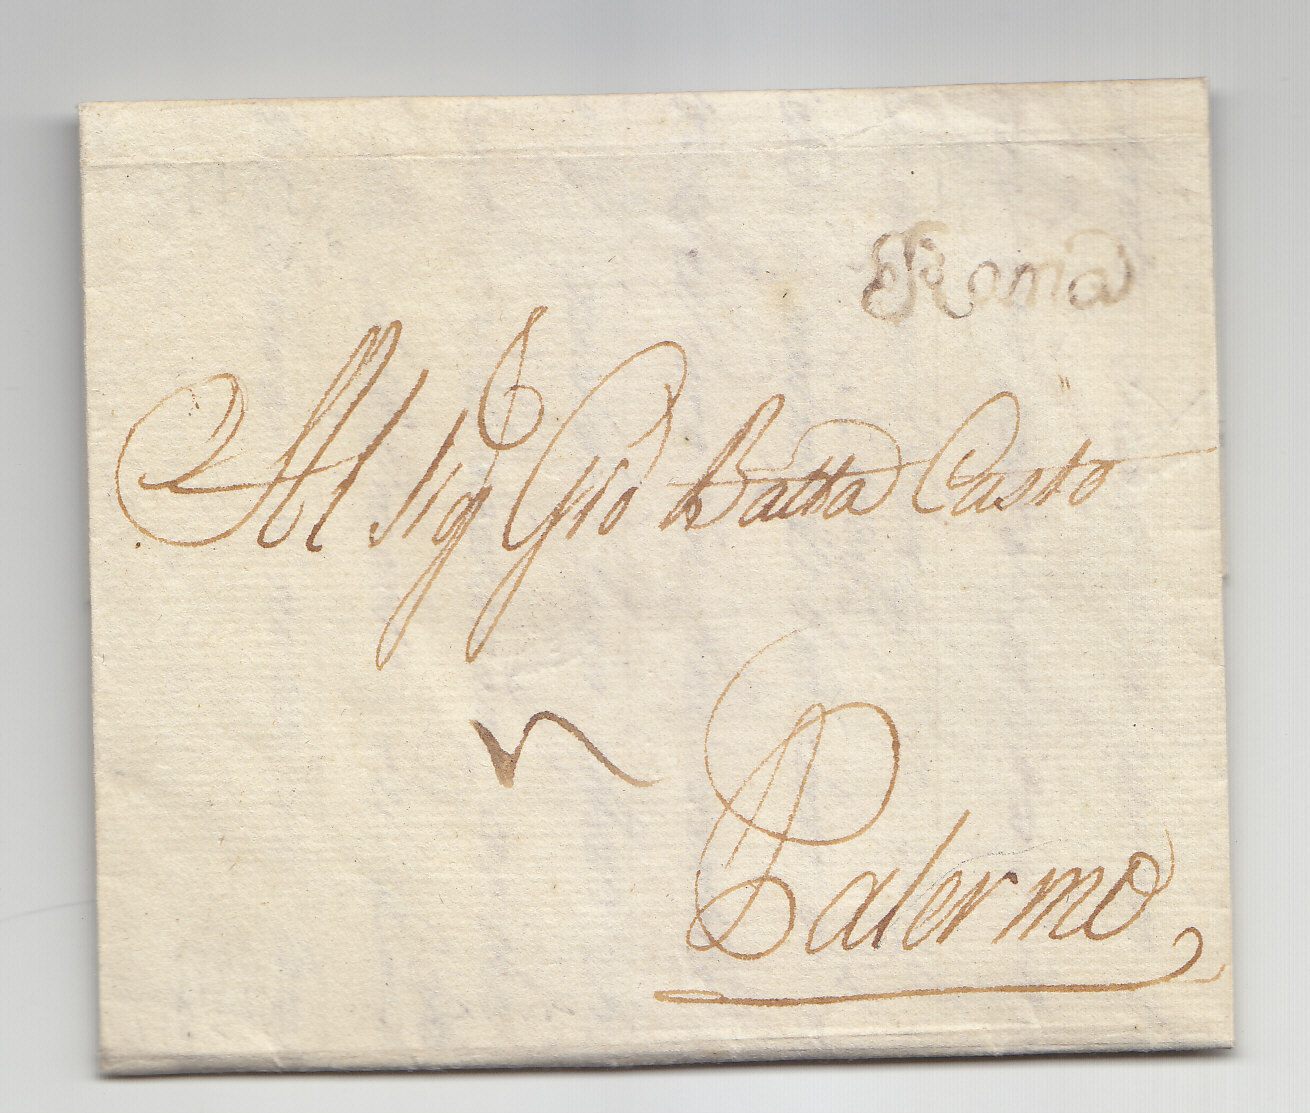 Roma
Al Sig.r Gio Batta Casto
Palermo